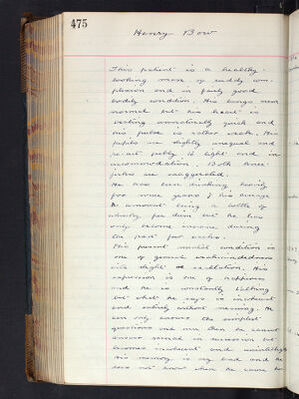 475
Henry Bow
This patient is a healthy
looking man of ruddy com-
plexion and in fairly good
bodily condition. His lungs seem
normal but his heart is
beating abnormally quick and
his pulse is rather weak. His
pupils are slightly unequal and
re-act to light and in
accommodation. Both knee
jerks are exaggerated.
He has been drinking heavily
for some years, his average
amount being a bottle of
whisky per diem but he has
only become insane during
the past
His present mental condition is
one of general weakmindedness
with slight exaltation. His
expression is one of happiness
and he is constantly talking
but what he says is incoherent
and entirely without meaning. He
can only answer the simplest
questions and even then he cannot
answer
becomes incoherent and unintelligible
His memory is very bad and he
does not know when he came here